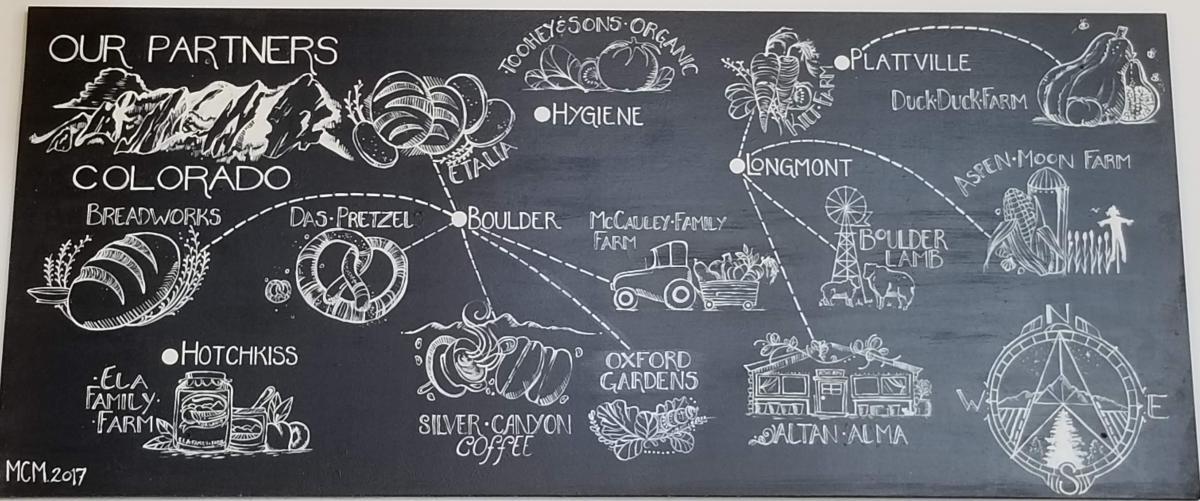 OUR PARTNERS
COLORADO
·TOOHEY & SONS· ORGANIC
HYGIENE
ÉTALIA
KILT FARM
PLATTVILLE
DUCK·DUCK·FARM
LONGMONT
ASPEN·MOON FARM
BREADWORKS
DAS·PRETZEL
BOULDER
McCAULEY·FAMILY
FARM
BOULDER
LAMB
HOTCHKISS
·ELA
FAMILY·
·FARM
SILVER·CANYON
COFFEE
OXFORD
GARDENS
ALTAN·ALMA
N
W
E
S
MCM.2017